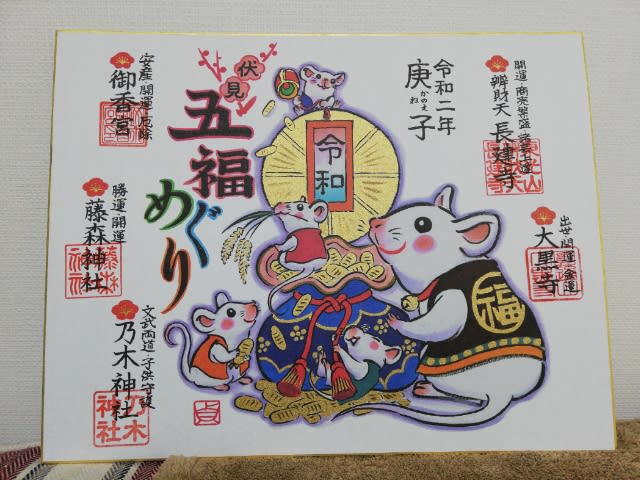 伏見
五福めぐり
令和二年
庚子
かのえ
ね
開運・商売繁盛
辨財天 長建寺
出世開運・金運
大黒寺
安産 開運・厄除
御香宮
勝運 開運
藤森神社
藤森神社
文武両道・子供守護
乃木神社
乃木神社
令和
福
貞